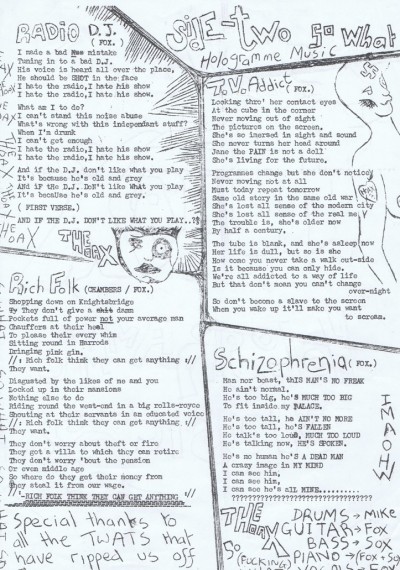 RADIO D.J.
(FOX.)
I made a bad mistake
Tuning in to a bad D.J.
His voice is heard all over the place,
He should be SHOT in the face
I hate the radio, I hate his show
I hate the radio, I hate his show.
What am I to do?
I can't stand this noise abuse
What's wrong with this independant stuff?
When I'm drunk
I can't get enough
I hate the radio, I hate his show
I hate the radio, I hate his show.
And if the D.J. don't like what you play
It's because he's old and grey.
And if the D.J. DoN't like What you play
It's because he's old and grey.
(FIRST VERSE.)
AND IF THE D.J. DON'T LIKE WHAT YOU PLAY..?
THE DAX
Rich Folk (CHAMBERS / FOX.)
Shopping down on Knightsbridge
They don't give a damn
Pockets full of power not your average man
Chauffers at their heal
To please their every whim
Sitting round in Harrods
Drinking pink gin.
//: Rich folk think they can get anything ://
They want.
Disgusted by the likes of me and you
Locked up in their mansions
Nothing else to do
Riding round the west-end in a big rolls-royce
Shouting at their servants in an educated voice
//: Rich folk think they can get anything ://
They want.
They don't worry about theft or fire
They got a villa to which they can retire
They don't worry 'bout the pension
Or even middle age
So where do they get their money from
They steal it from our wage.
//-RICH FOLK THINK THEY CAN GET ANYTHING ://
Special thanks to
all the TWATS that
have ripped us off
side-two so what
Hologramme Music
T.V. Addict (FOX.)
Looking thro' her contact eyes
At the cube in the corner
Never moving out of sight
The pictures on the screen.
She's so imersed in sight and sound
She never turns her head around
Jane the PAIN is not a doll
She's living for the future.
Programmes change but she don't notice
Never moving not at all
Must today repeat tomorrow
Same old story in the same old war
She's lost all sense of the modern city
She's lost all sense of the real me
The trouble is, she's older now
By half a century.
The tube is blank, and she's asleep now
Her life is dull, but so is she
How come you never take a walk out-side
Is it because you can only hide.
We're all addicted to a way of life
But that don't mean you can't change
over-night
So don't become a slave to the screen
When you wake up it'll make you want
to scream.
Schizophrenia (FOX.)
Man nor beast, this MAN'S NO FREAK
He ain't normal.
He's too big, he'S MUCH TOO BIG
To fit inside my PALACE.
He's too tall, he AIN'T NO MORE
He's too tall, he's FALLEN
He talk's too loud, MUCH TOO LOUD
He's talking now, HE'S SPOKIN.
He's no human he'S A DEAD MAN
A crazy image in MY MIND
I can see him,
I can see him,
I can see he's all MINE.........
THE DAX
DRUMS → MIKE
GUITAR → Fox
BASS → Sox
PIANO → (Fox + Sox
SO (FUCKING)